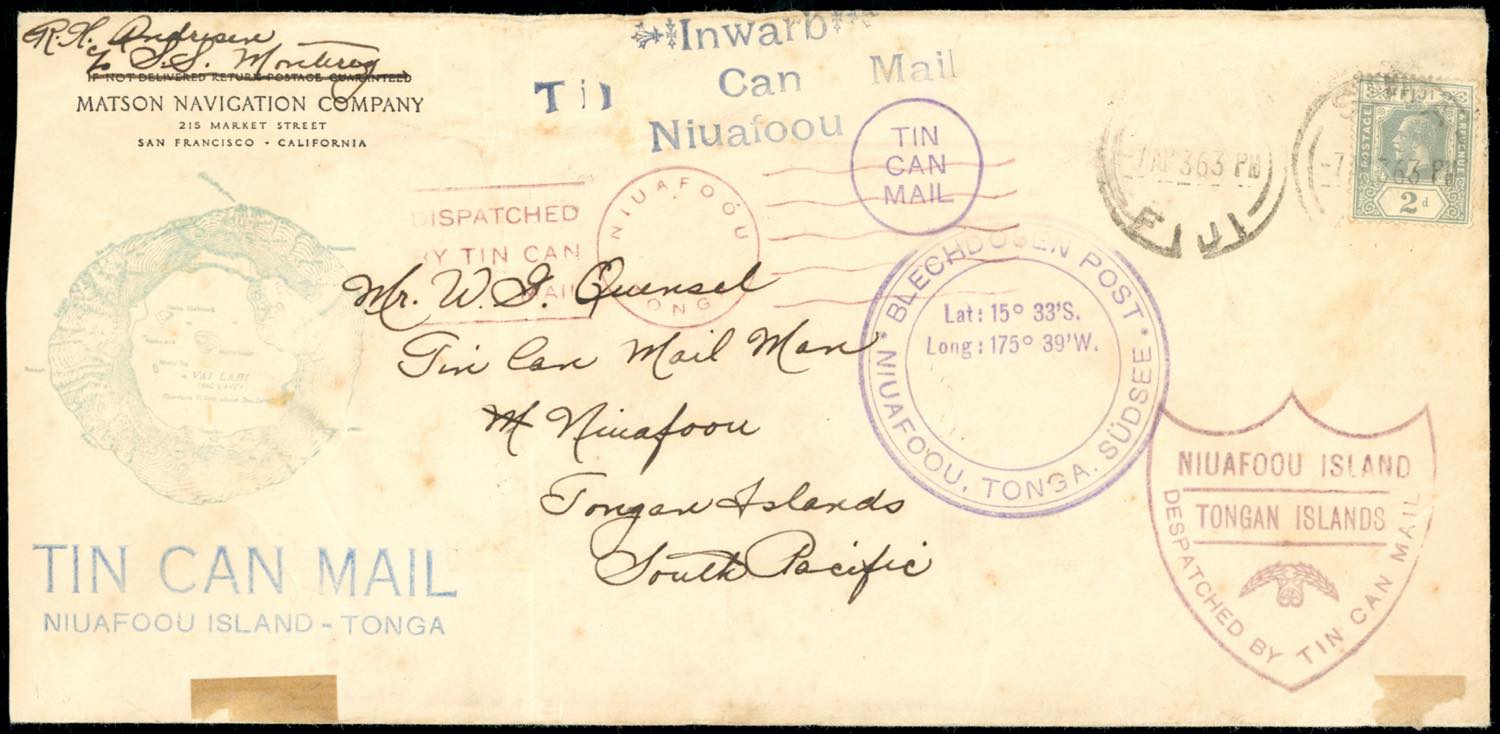 R. A. Andresen
℅ S.S. Monterey
IF NOT DELIVERED RETURN POSTAGE GUARANTEED
MATSON NAVIGATION COMPANY
215 MARKET STREET
SAN FRANCISCO • CALIFORNIA
Inwarb
Tin Can Mail
Niuafoou
TIN
CAN
MAIL
-7 AP 36 3 PM
FIJI
-7 36 3 PM
FIJI
POSTAGE & REVENUE
2d
DISPATCHED
BY TIN CAN
MAIL
NIUAFOÓU
TONGA
BLECHDOSEN POST
Lat: 15° 33'S.
Long: 175° 39'W.
NIUAFOOU, TONGA. SÜDSEE
Mr. W. G. Quensel
Tin Can Mail Man
Niuafoou
Tongan Islands
South Pacific
VAI LAHI
NIUAFOOU ISLAND
TONGAN ISLANDS
DESPATCHED BY TIN CAN MAIL
TIN CAN MAIL
NIUAFOOU ISLAND - TONGA